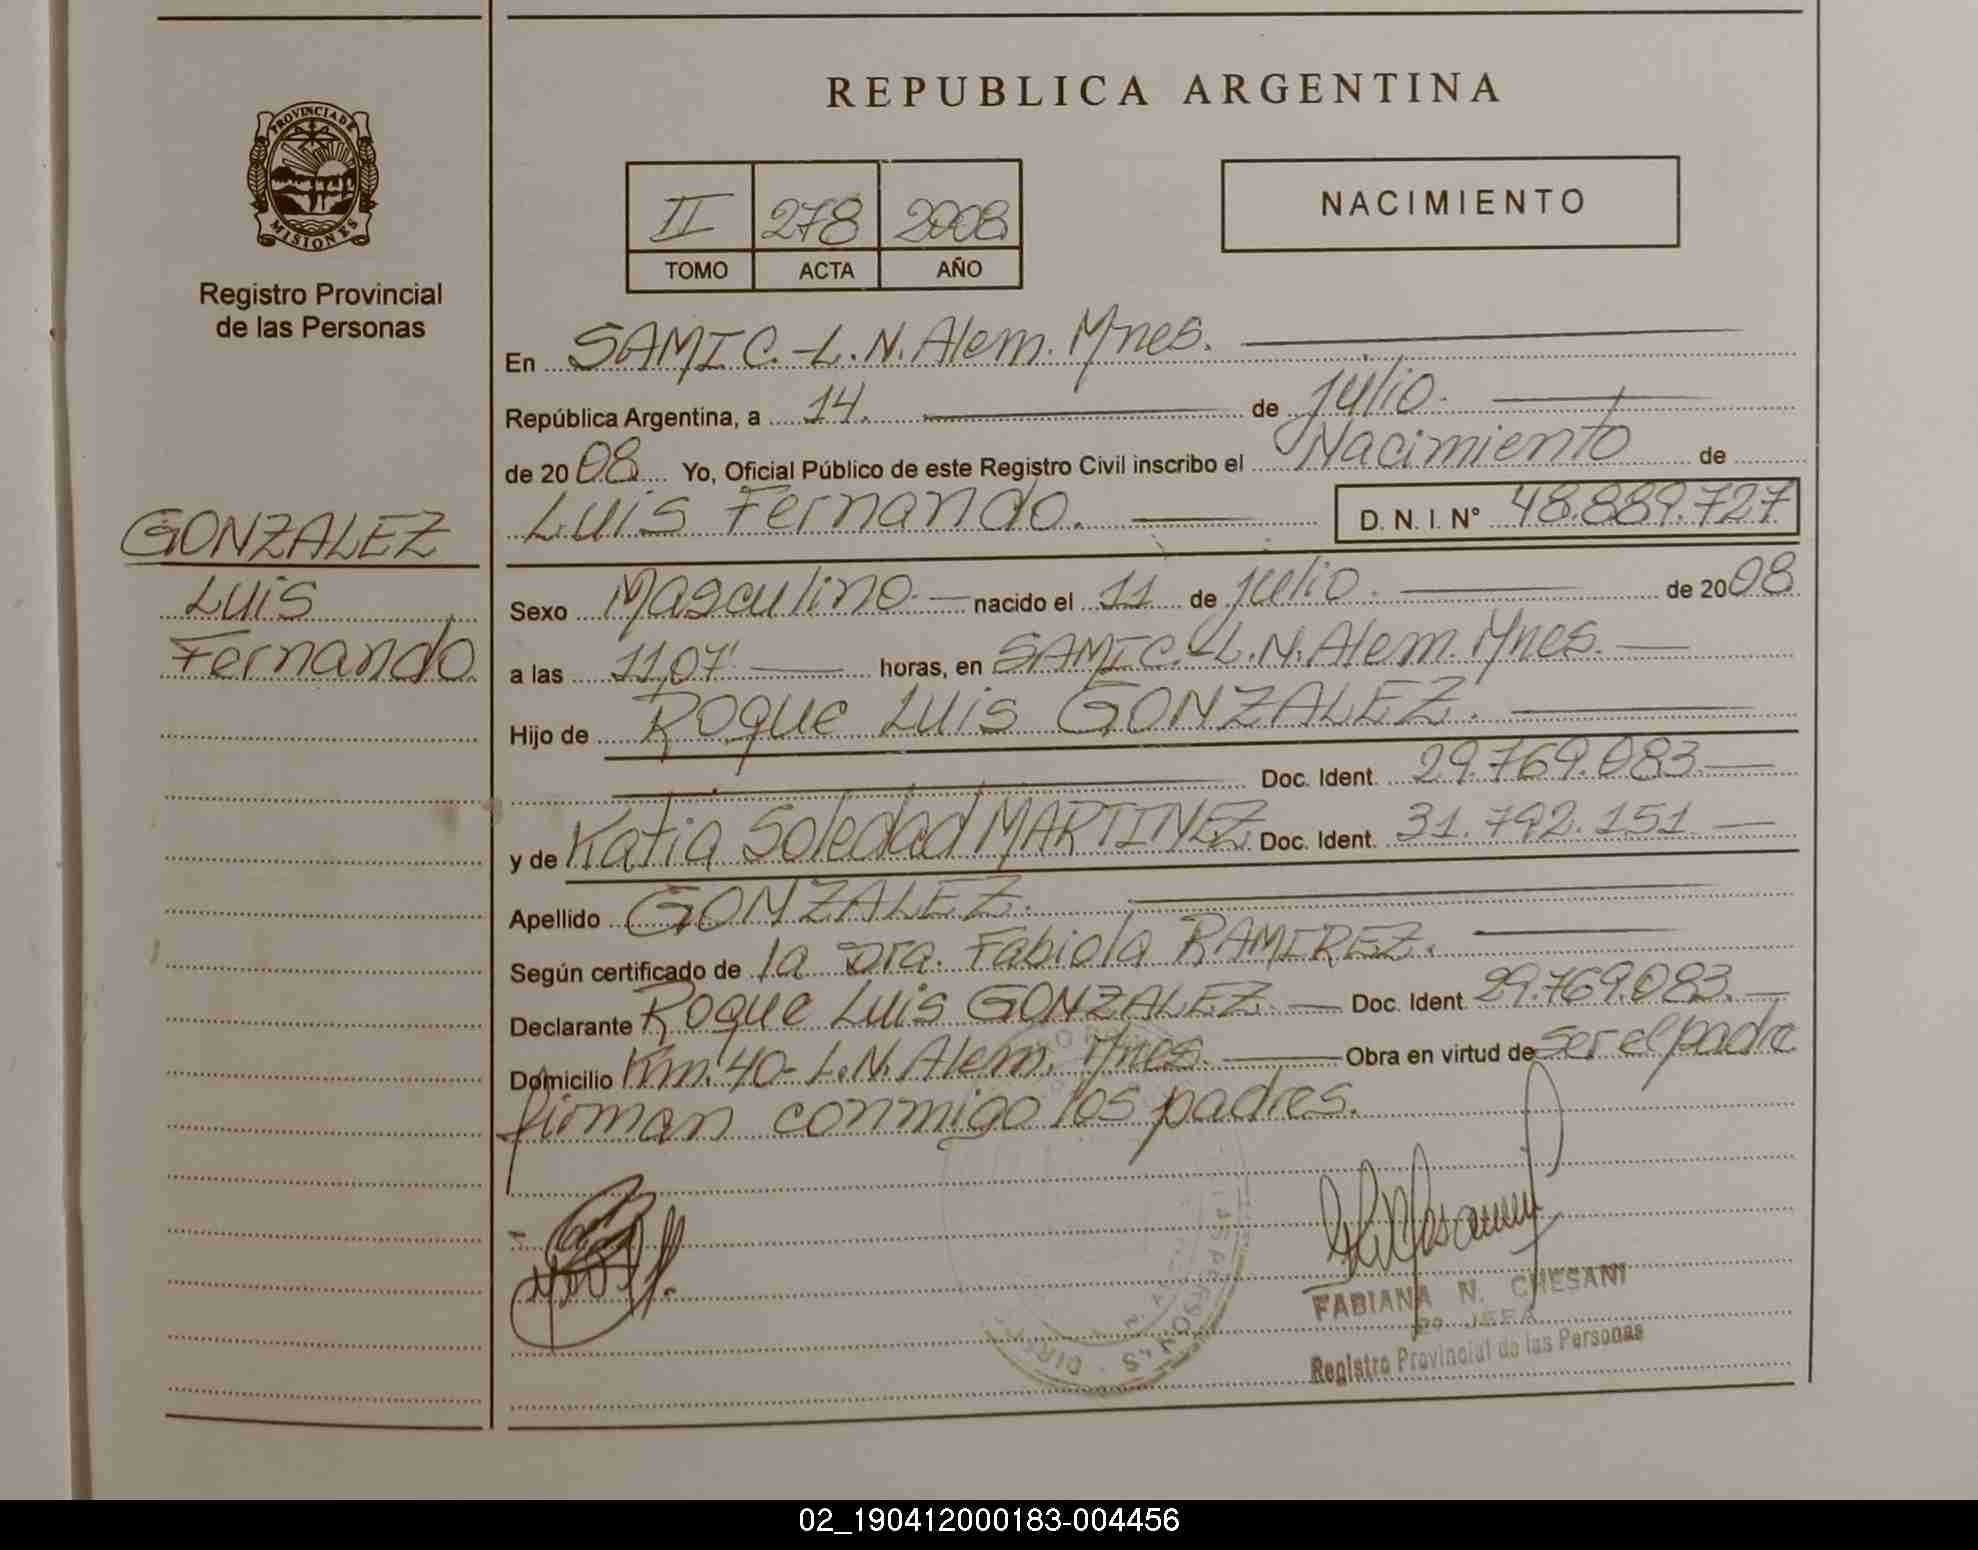 REPUBLICA ARGENTINA
PROVINCIA DE MISIONES
Registro Provincial
de las Personas
II 278 2008
TOMO ACTA AÑO
NACIMIENTO
En SAMIC.-L.N.Alem. Mnes.
República Argentina, a 14. de julio.
de 2008 Yo, Oficial Público de este Registro Civil inscribo el Nacimiento de
Luis Fernando. D. N. I. N° 48.889.727
GONZALEZ
Luis
Fernando.
Sexo Masculino. nacido el 11 de julio. de 2008
a las 11,07 horas, en SAMIC.-L.N.Alem. Mnes.
Hijo de Roque Luis GONZALEZ.
Doc. Ident. 29.769.083.
y de Katia Soledad MARTINEZ. Doc. Ident. 31.792.151.
Apellido GONZALEZ.
Según certificado de la Dra. Fabiola RAMIREZ.
Declarante Roque Luis GONZALEZ. Doc. Ident. 29.769.083.
Domicilio Km.40-L.N.Alem. Mnes. Obra en virtud de ser el padre
firman conmigo los padres.
FABIANA N. CHESANI
JEFA
Registro Provincial de las Personas
02_190412000183-004456